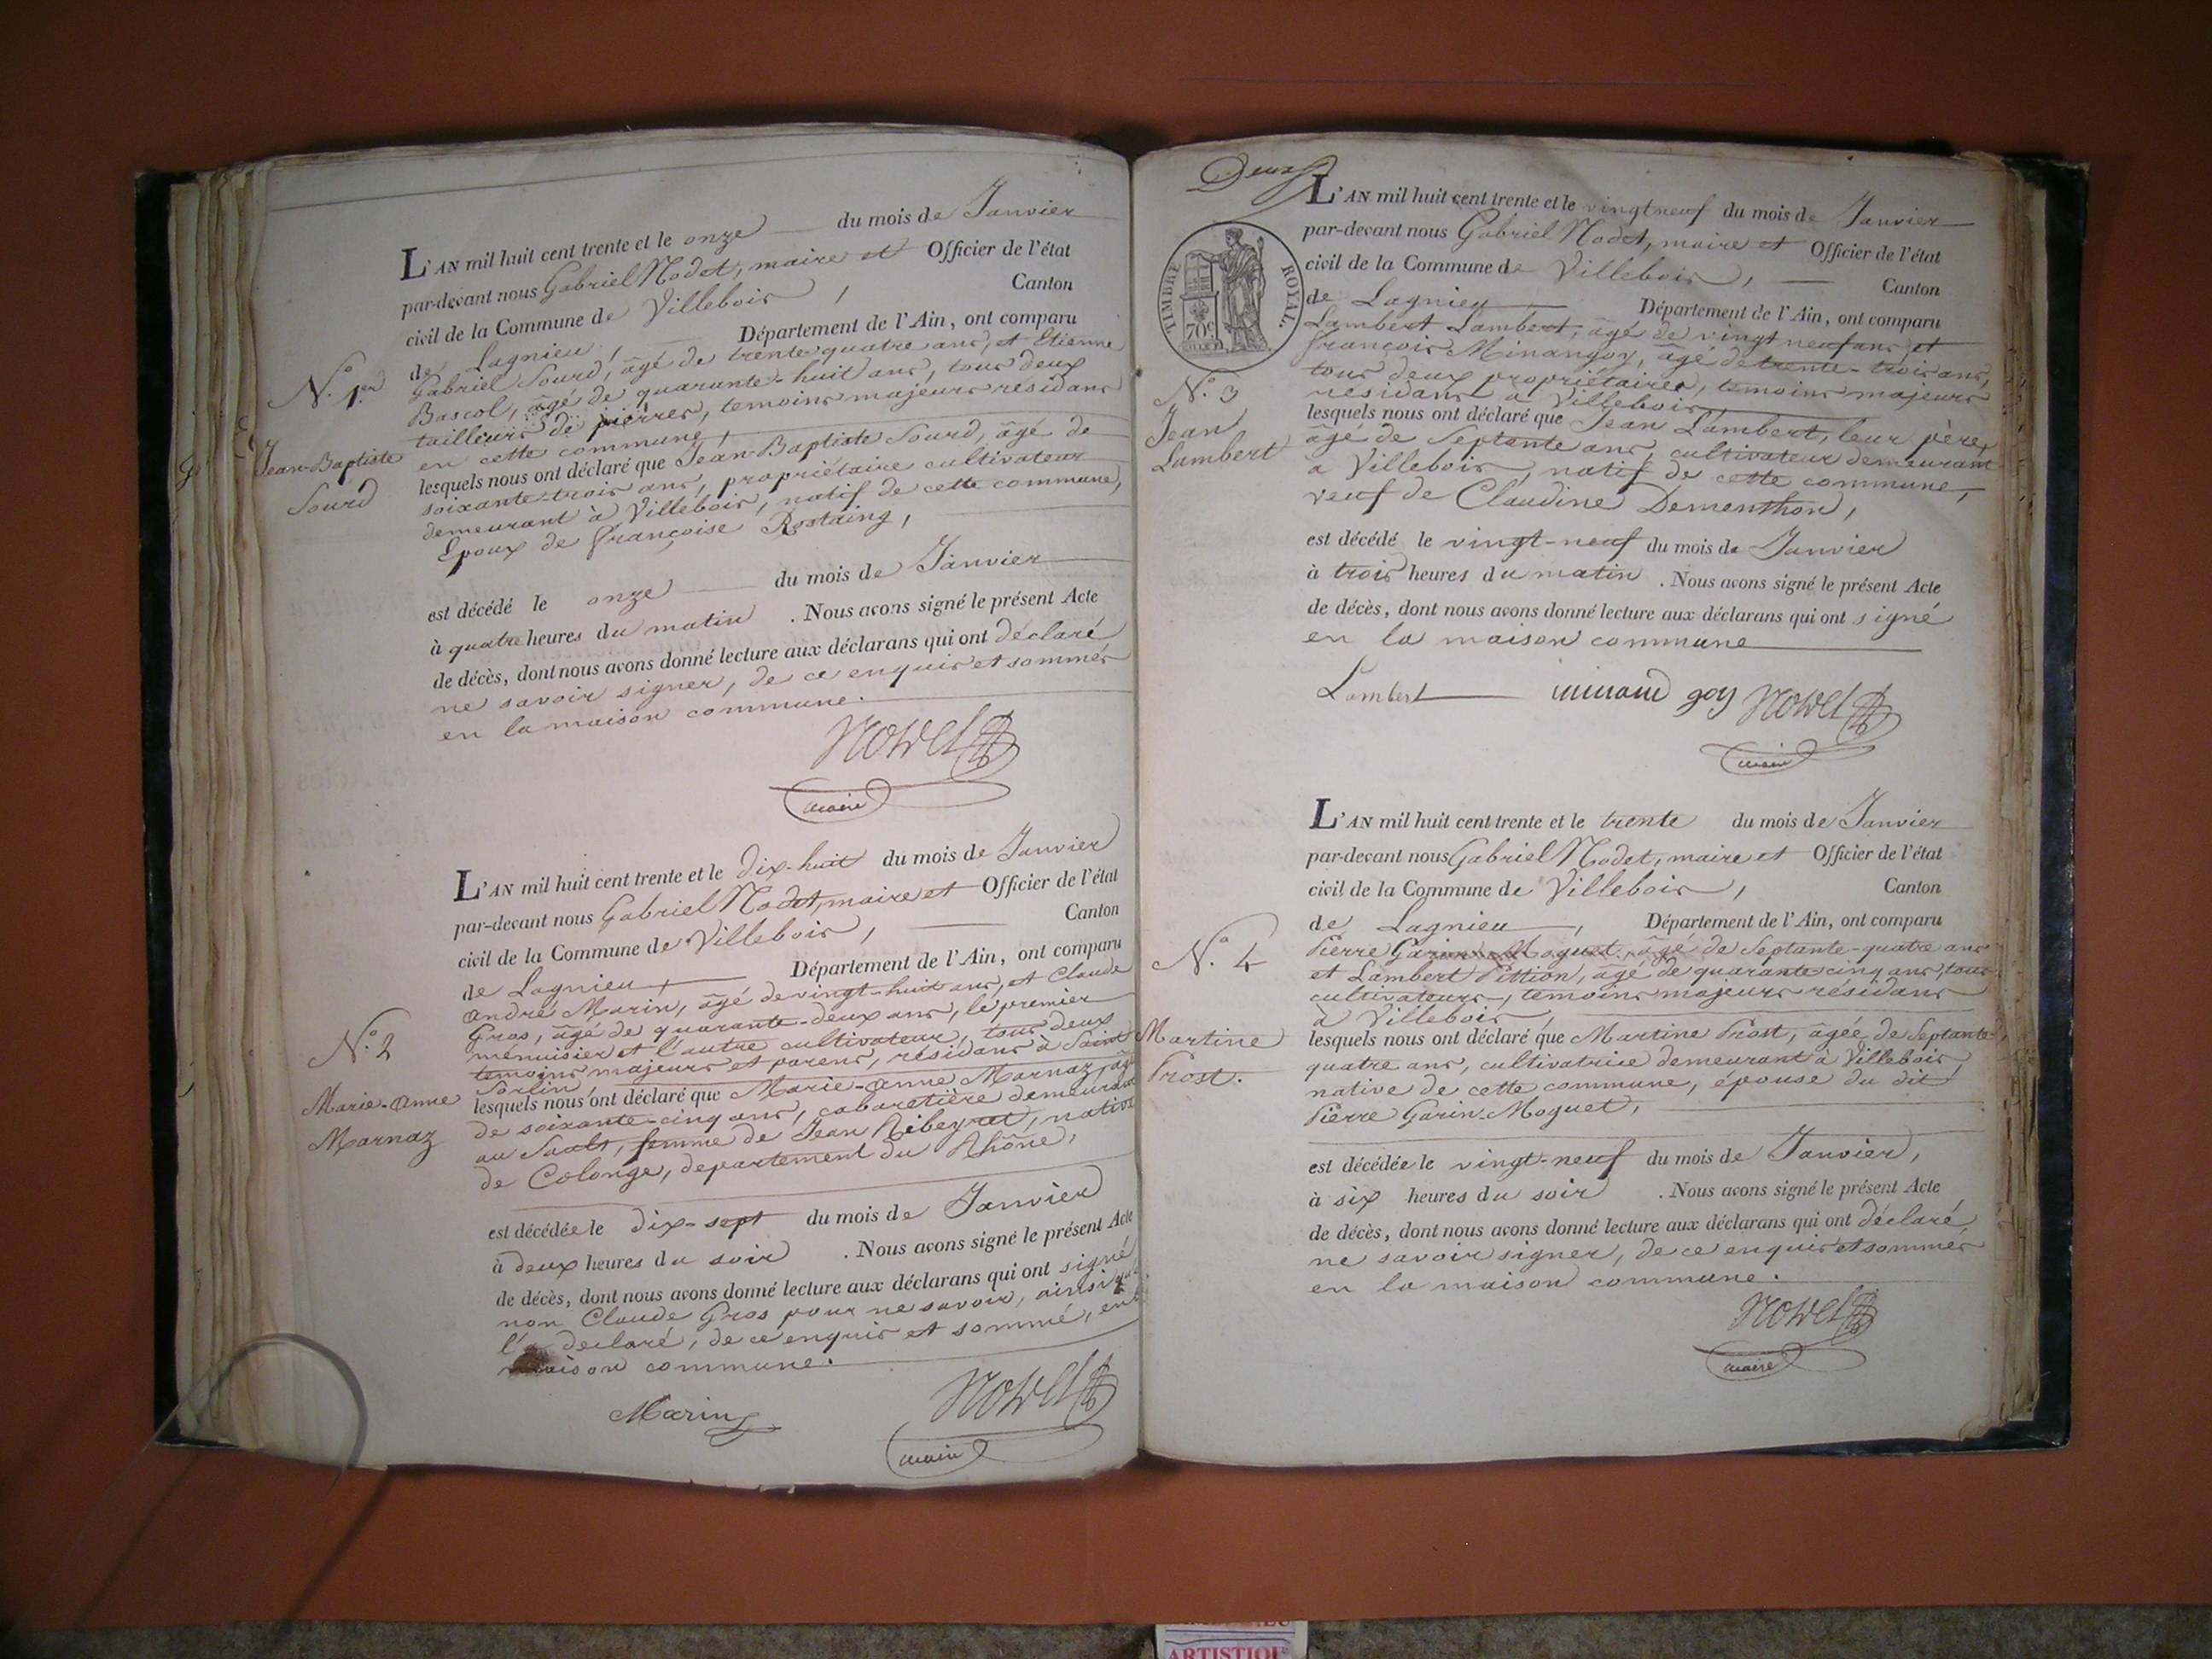 L'AN mil huit cent trente et le onze du mois de Janvier
par-devant nous Gabriel Nodet, maire et Officier de l'état
civil de la Commune de Villebois, Canton
de Lagnieu, Département de l'Ain, ont comparu
N.° 1.er
Gabriel Sourd, âgé de trente-quatre ans, et Etienne
Bascol, âgé de quarante-huit ans, tous deux
tailleurs de pierres, temoins majeurs résidans
en cette commune,
Jean-Baptiste
Sourd
lesquels nous ont déclaré que Jean-Baptiste Sourd, âgé de
soixante-trois ans, propriétaire cultivateur
demeurant à Villebois, natif de cette commune,
Epoux de Françoise Rostaing,
est décédé le onze du mois de Janvier
à quatre heures du matin. Nous avons signé le présent Acte
de décès, dont nous avons donné lecture aux déclarans qui ont déclaré
ne savoir signer, de ce enquis et sommés
en la maison commune.
Nodet
maire
L'AN mil huit cent trente et le dix-huit du mois de Janvier
par-devant nous Gabriel Nodet, maire et Officier de l'état
civil de la Commune de Villebois, Canton
de Lagnieu, Département de l'Ain, ont comparu
André Marin, âgé de vingt-huit ans, et Claude
Gros, âgé de quarante-deux ans, le premier
N.° 2
ménuisier et l'autre cultivateur, tous deux
temoins majeurs et parens, résidans à Saint
Sorlin,
Marie-Anne
Marnaz
lesquels nous ont déclaré que Marie-Anne Marnaz, âgée
de soixante-cinq ans, cabaretière demeurant
au Sault, femme de Jean Ribeyret, native
de Colonge, departement du Rhône,
est décédée le dix-sept du mois de Janvier
à deux heures du soir. Nous avons signé le présent Acte
de décès, dont nous avons donné lecture aux déclarans qui ont signé
non Claude Gros pour ne savoir, ainsi qu'il
l'a declaré, de ce enquis et sommé, en la
maison commune.
Marin
Nodet
maire
Deux
TIMBRE ROYAL.
70c
L'AN mil huit cent trente et le vingt neuf du mois de Janvier
par-devant nous Gabriel Nodet, maire et Officier de l'état
civil de la Commune de Villebois, Canton
de Lagnieu, Département de l'Ain, ont comparu
Lambert Lambert, âgé de vingt neuf ans, et
François Minangoy, âgé de trente-trois ans,
N.° 3
Jean
Lambert
tous deux propriétaires, temoins majeurs
résidant à Villebois,
lesquels nous ont déclaré que Jean Lambert, leur père,
âgé de Septante ans, cultivateur demeurant
à Villebois, natif de cette commune,
veuf de Claudine Dementhon,
est décédé le vingt-neuf du mois de Janvier
à trois heures du matin. Nous avons signé le présent Acte
de décès, dont nous avons donné lecture aux déclarans qui ont signé
en la maison commune
Lambert minand goy Nodet
maire
L'AN mil huit cent trente et le trente du mois de Janvier
par-devant nous Gabriel Nodet, maire et Officier de l'état
civil de la Commune de Villebois, Canton
de Lagnieu, Département de l'Ain, ont comparu
N.° 4
Pierre Garin Moguet, âgé de Septante-quatre ans
et Lambert Pittion, âgé de quarante-cinq ans, tous
cultivateurs, temoins majeurs résidans
à Villebois,
Martine
Trost.
lesquels nous ont déclaré que Martine Trost, âgée de Septante-
quatre ans, cultivatrice demeurant à Villebois,
native de cette commune, épouse du dit
Pierre Garin-Moguet,
est décédée le vingt-neuf du mois de Janvier,
à six heures du soir. Nous avons signé le présent Acte
de décès, dont nous avons donné lecture aux déclarans qui ont déclaré
ne savoir signer, de ce enquis et sommés
en la maison commune.
Nodet
maire
ARTISTIQUE